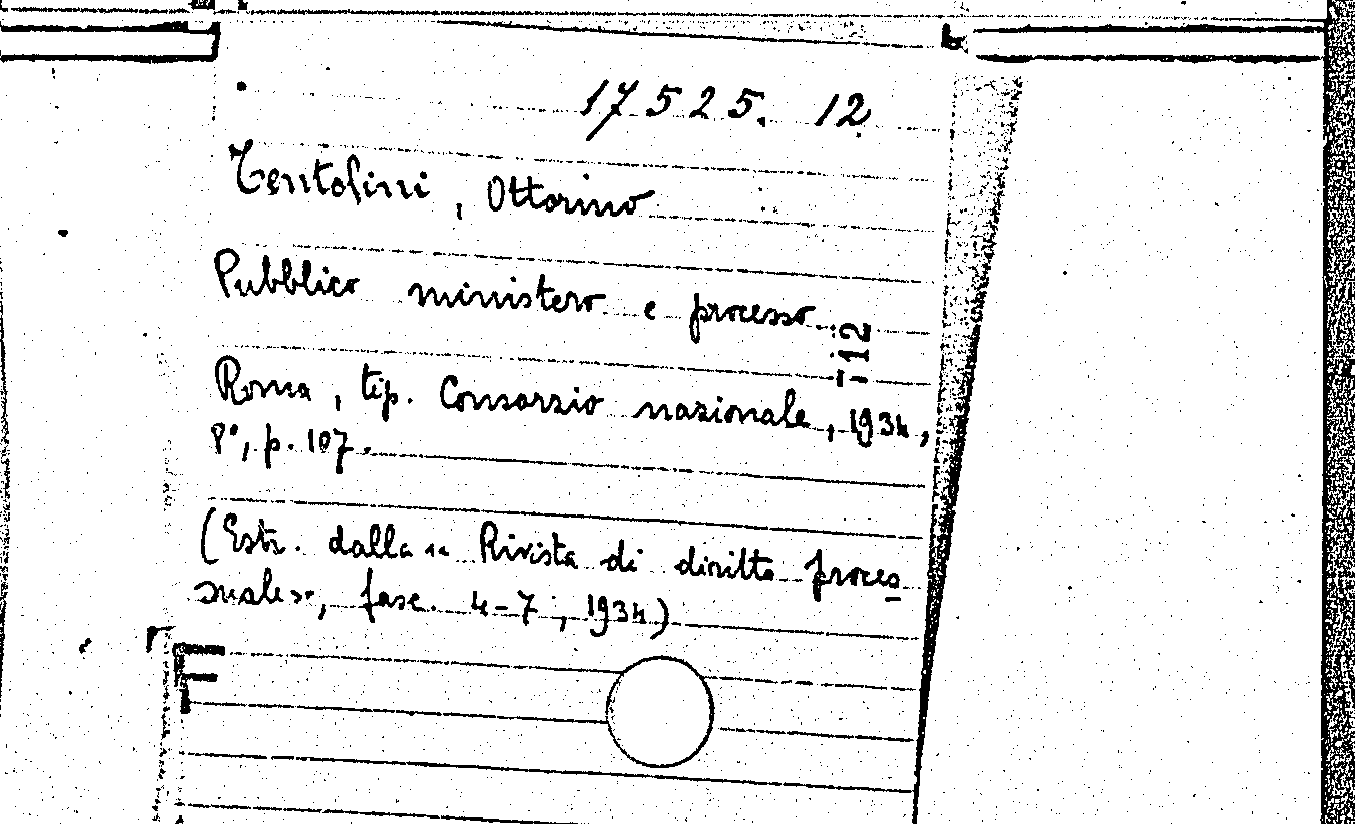 17525. 12
Tentolini, Ottorino
Pubblico ministero e processo
T12
Roma, tip. Consorzio nazionale, 1934,
8°, p. 107.
(Estr. dalla "Rivista di diritto proces
suale", fasc. 4-7, 1934)